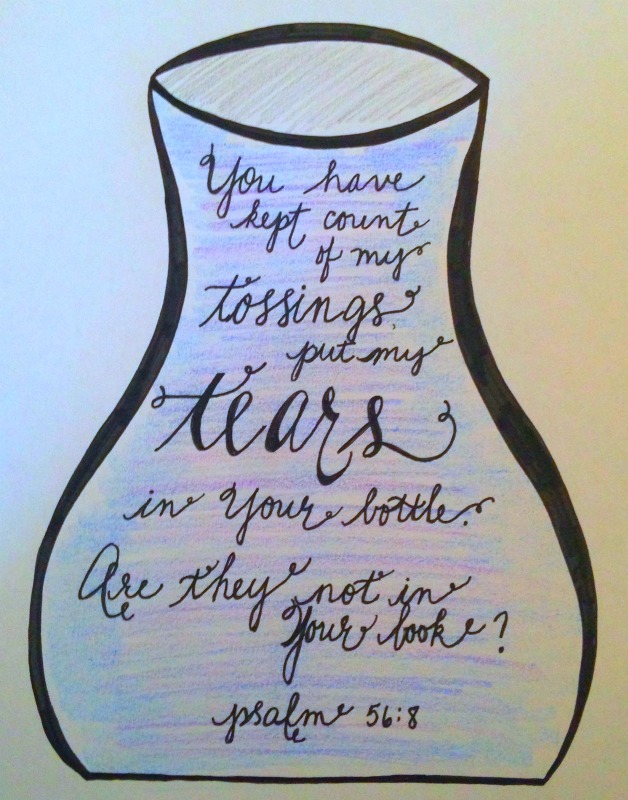 You have
kept count
of my
tossings,
put my
tears
in Your bottle.
Are they not in
Your book?
psalm 56:8